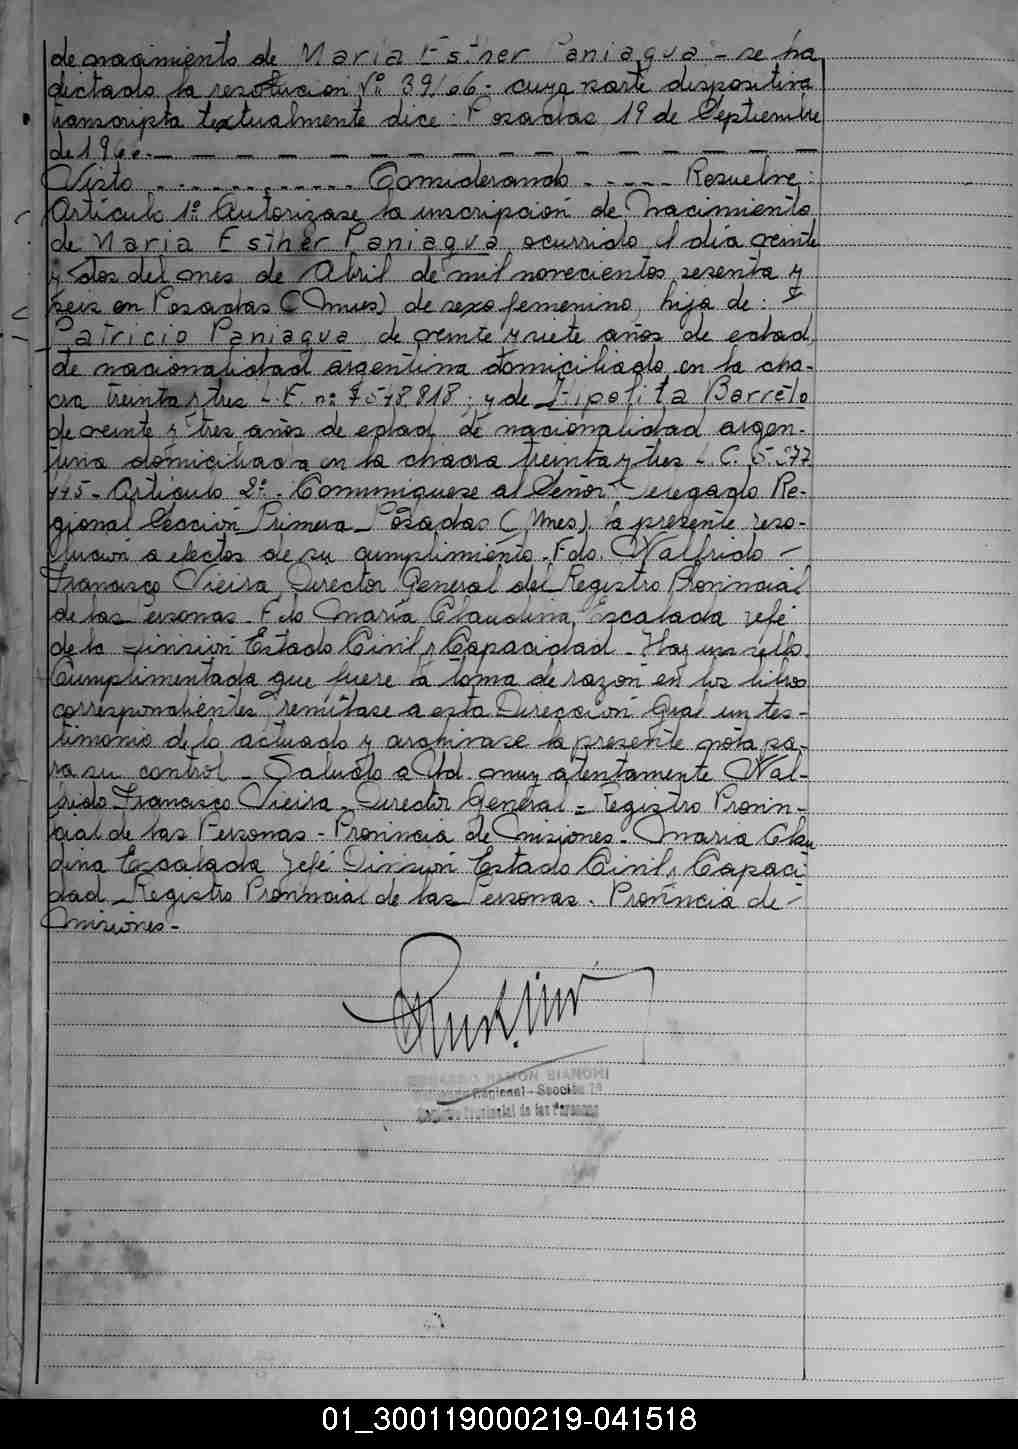 de nacimiento de Maria Esther Paniagua - se ha
dictado la resolucion Nº 39/66 - cuya parte dispositiva
transcripta textualmente dice: Posadas 19 de Septiembre
de 1966. — — — — — — — — — — — —
Visto - - - - - - - - - - - Considerando - - - - - Resuelve:
Artículo 1º Autorizase la inscripción de nacimiento
de Maria Esther Paniagua ocurrido el día veinte
y dos del mes de Abril de mil novecientos sesenta y
seis en Posadas (Mnes) de sexo femenino, hija de:
Patricio Paniagua de veinte y siete años de edad,
de nacionalidad argentina domiciliado en la cha-
cra treinta y tres L.E. nº 7578.818; y de Hipolita Barreto
de veinte y tres años de edad, de nacionalidad argen-
tina domiciliada en la chacra treinta y tres L.C. 5.377
Artículo 2º - Comuniquese al Señor Delegado Re-
gional Sección Primera - Posadas (Mnes). la presente reso-
lución a efectos de su cumplimiento - Fdo. Walfrido -
Francisco Vieira, Director General del Registro Provincial
de las Personas - Fdo María Claudina Escalada Jefe
de la División Estado Civil y Capacidad - Hay un sello.
Cumplimentada que fuere la toma de razón en los libros
correspondientes remítase a esta Dirección Gral un tes-
timonio de lo actuado y archivase la presente nota pa-
ra su control - Saludo a Ud. muy atentamente Wal-
frido Francisco Vieira - Director General = Registro Provin-
cial de las Personas - Provincia de Misiones - Maria Clau
dina Escalada Jefe División Estado Civil y Capaci-
dad - Registro Provincial de las Personas. Provincia de -
Misiones -
RAMON BIANCHI
Regional - Sección 1ª
Registro Provincial de las Personas
01_300119000219-041518